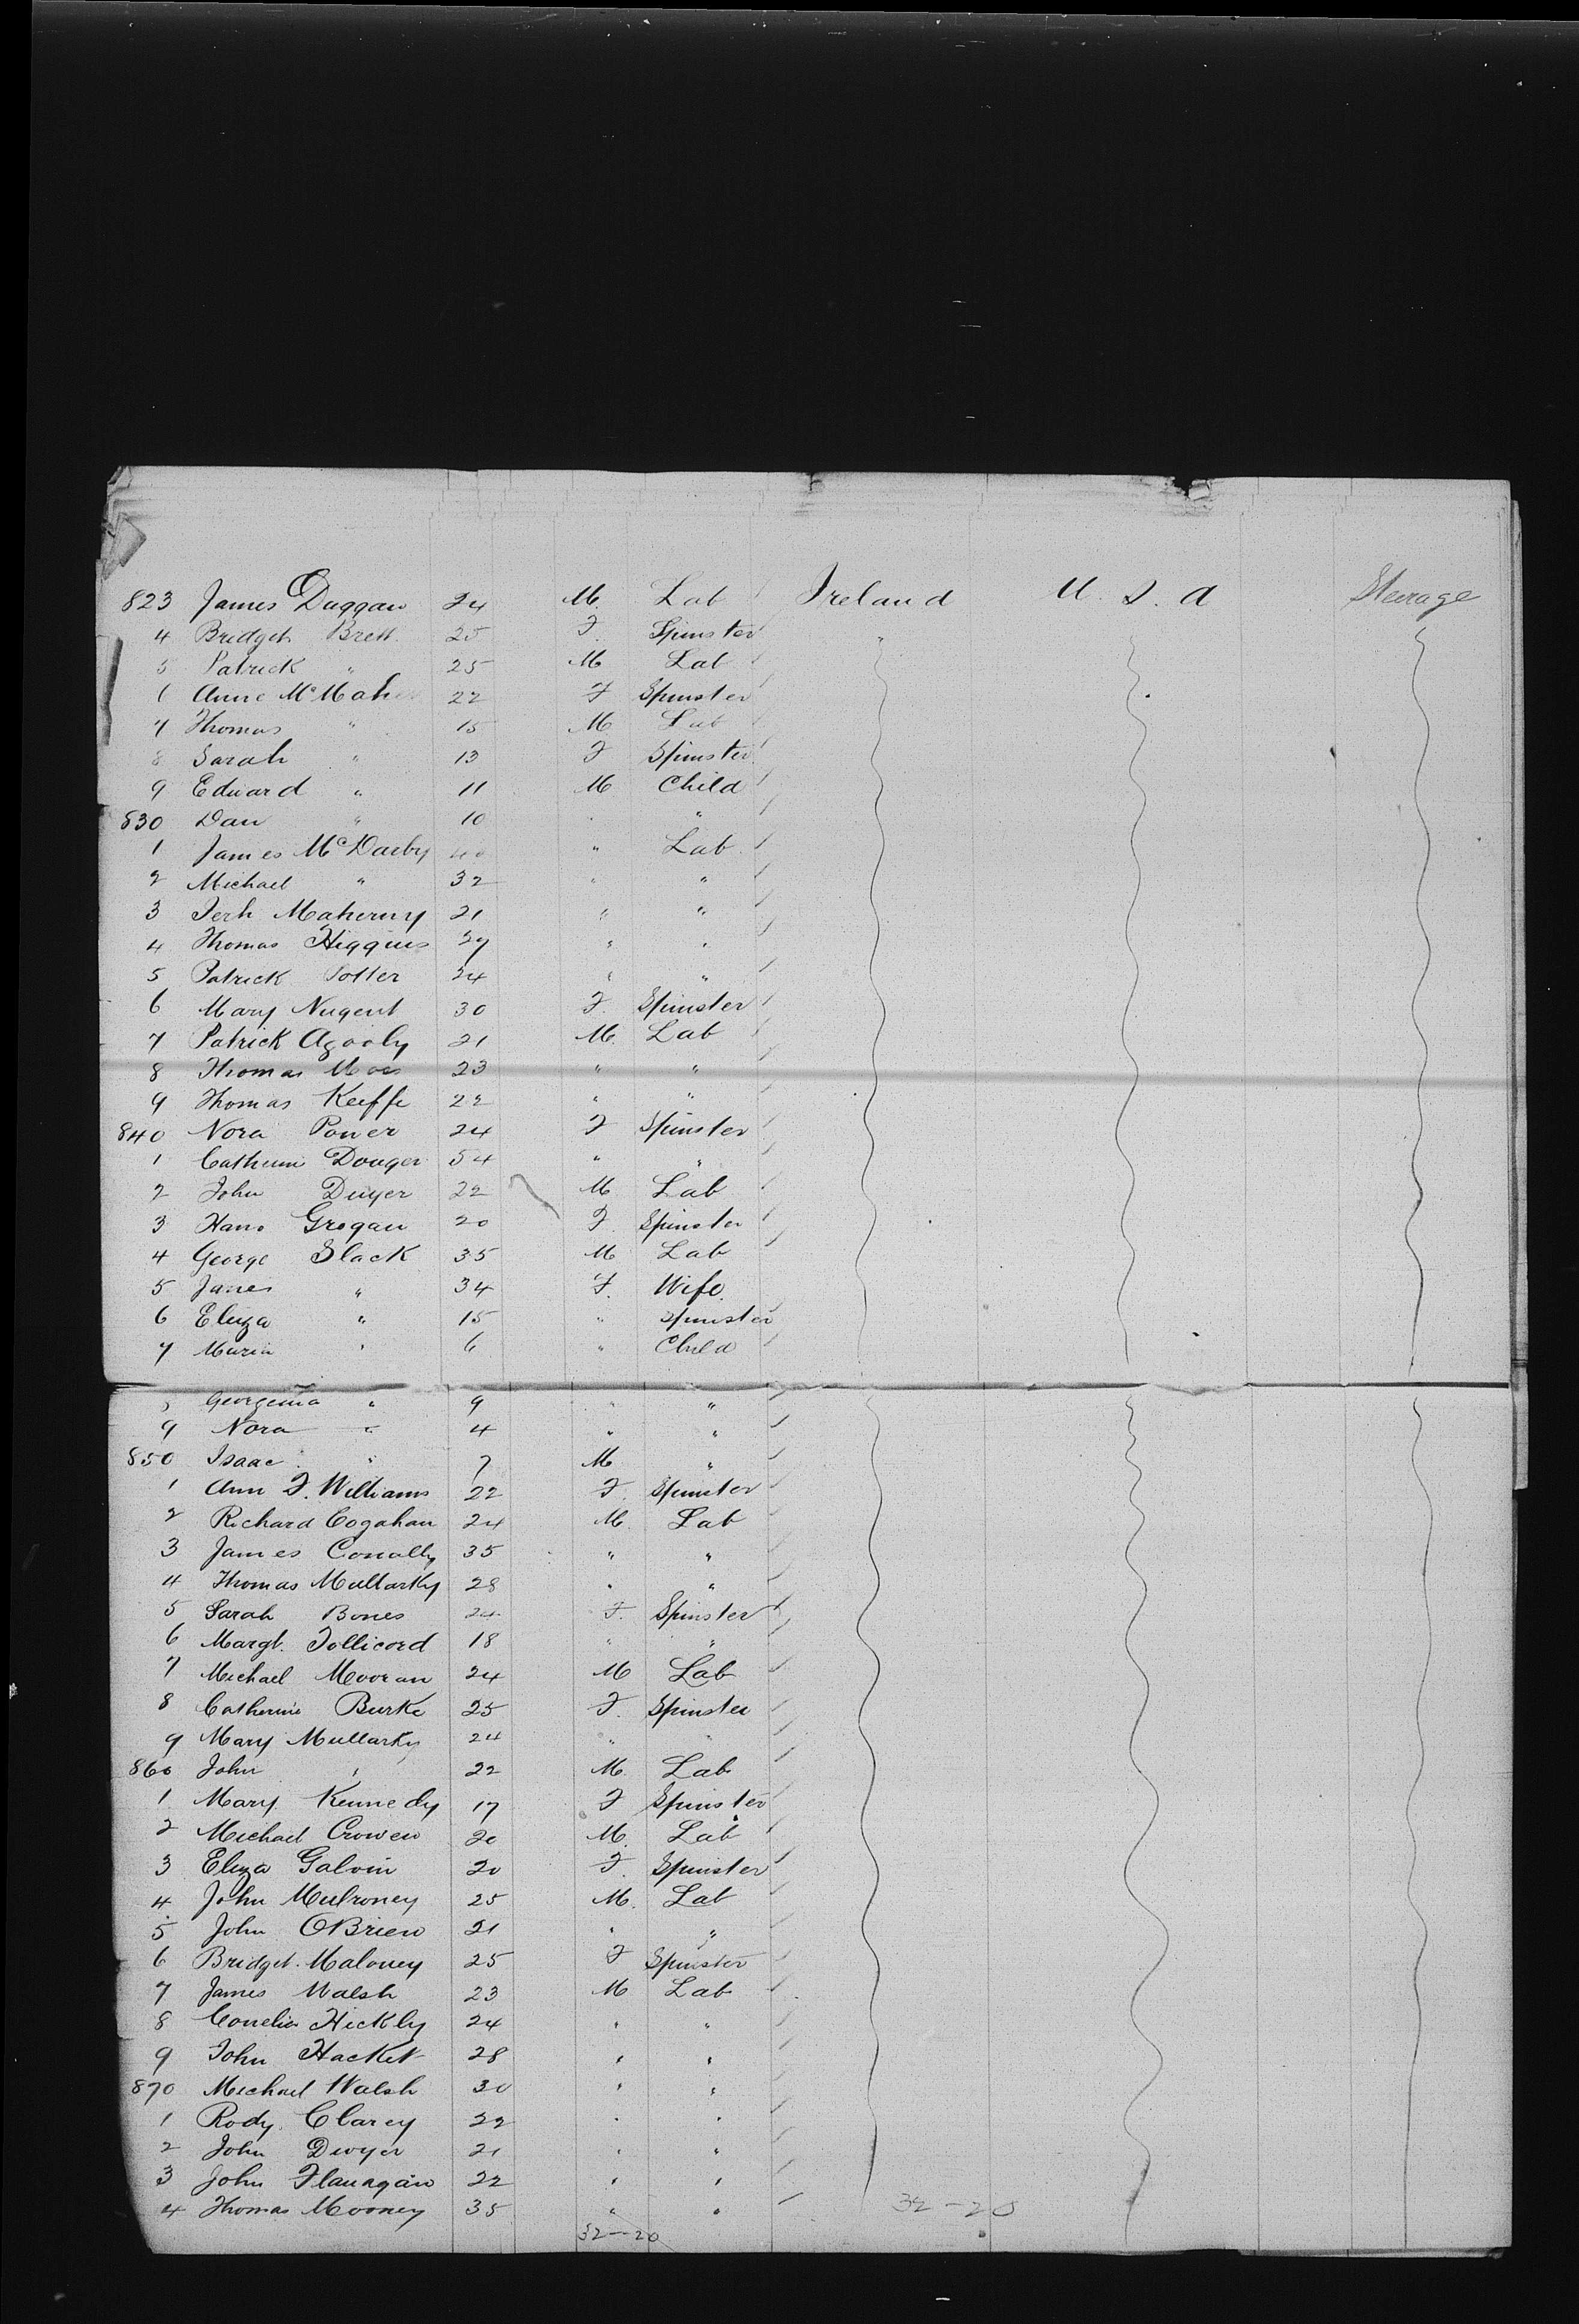 823 James Duggan 24 M. Lab Ireland U. S. A Steerage
4 Bridget Brett 25 F. Spinster "
5 Patrick " 25 M Lab
6 Anne McMahon 22 F Spinster
7 Thomas " 15 M Lab
8 Sarah " 13 F Spinster
9 Edward " 11 M Child
830 Dan " 10 " "
1 James McDarby 40 " Lab
2 Michael " 32 " "
3 Jerh Maherny 21 " "
4 Thomas Higgins 27 " "
5 Patrick Potter 24 " "
6 Mary Nugent 30 F. Spinster
7 Patrick Agooly 21 M. Lab
8 Thomas 23 " "
9 Thomas Keeffe 22 " "
840 Nora Power 24 F Spinster
1 Catherine Donger 54 " "
2 John Dwyer 22 M Lab
3 Hano Grogan 20 F. Spinster
4 George Slack 35 M Lab
5 Janes " 34 F. Wife
6 Eliza " 15 " Spinster
7 Maria " 6 " Child
8 Georgenia " 9 " "
9 Nora " 4 " "
850 Isaac " 7 M "
1 Ann F. Williams 22 F. Spinster
2 Richard Cogahan 24 M. Lab
3 James Conally 35 " "
4 Thomas Mullarky 28 " "
5 Sarah Bones 24 F. Spinster
6 Margt. Tollicord 18 " "
7 Michael Mooran 24 M Lab
8 Catherine Burke 25 F. Spinster
9 Mary Mullarky 24 " "
860 John " 22 M. Lab
1 Mary Kennedy 17 F Spinster
2 Michael Crowen 20 M. Lab
3 Eliza Galvin 20 F. Spinster
4 John Mulroney 25 M. Lab
5 John OBrien 21 " "
6 Bridget Maloney 25 F Spinster
7 James Walsh 23 M Lab
8 Cornelia Hickly 24 " "
9 John Hacket 28 " "
870 Michael Walsh 30 " "
1 Rody Clarey 22 " "
2 John Dwyer 21 " "
3 John Flanagan 22 " "
4 Thomas Mooney 35 " " 32-20
32-20